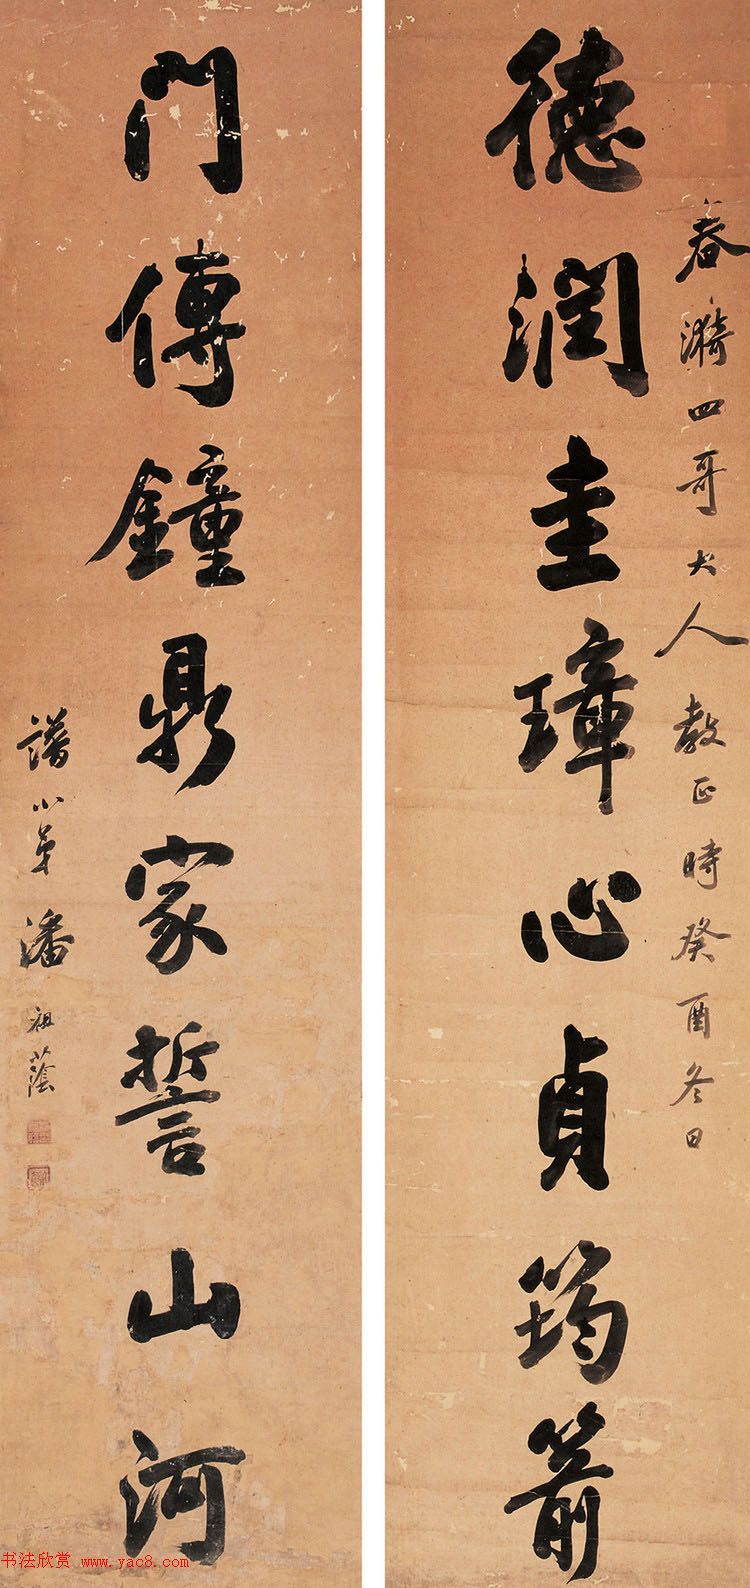 春漪四哥大人教正時癸酉冬日
德潤圭璋心貞筠箭
門傳鐘鼎家誓山河
譜小弟潘祖蔭
书法欣赏 www.yac8.com